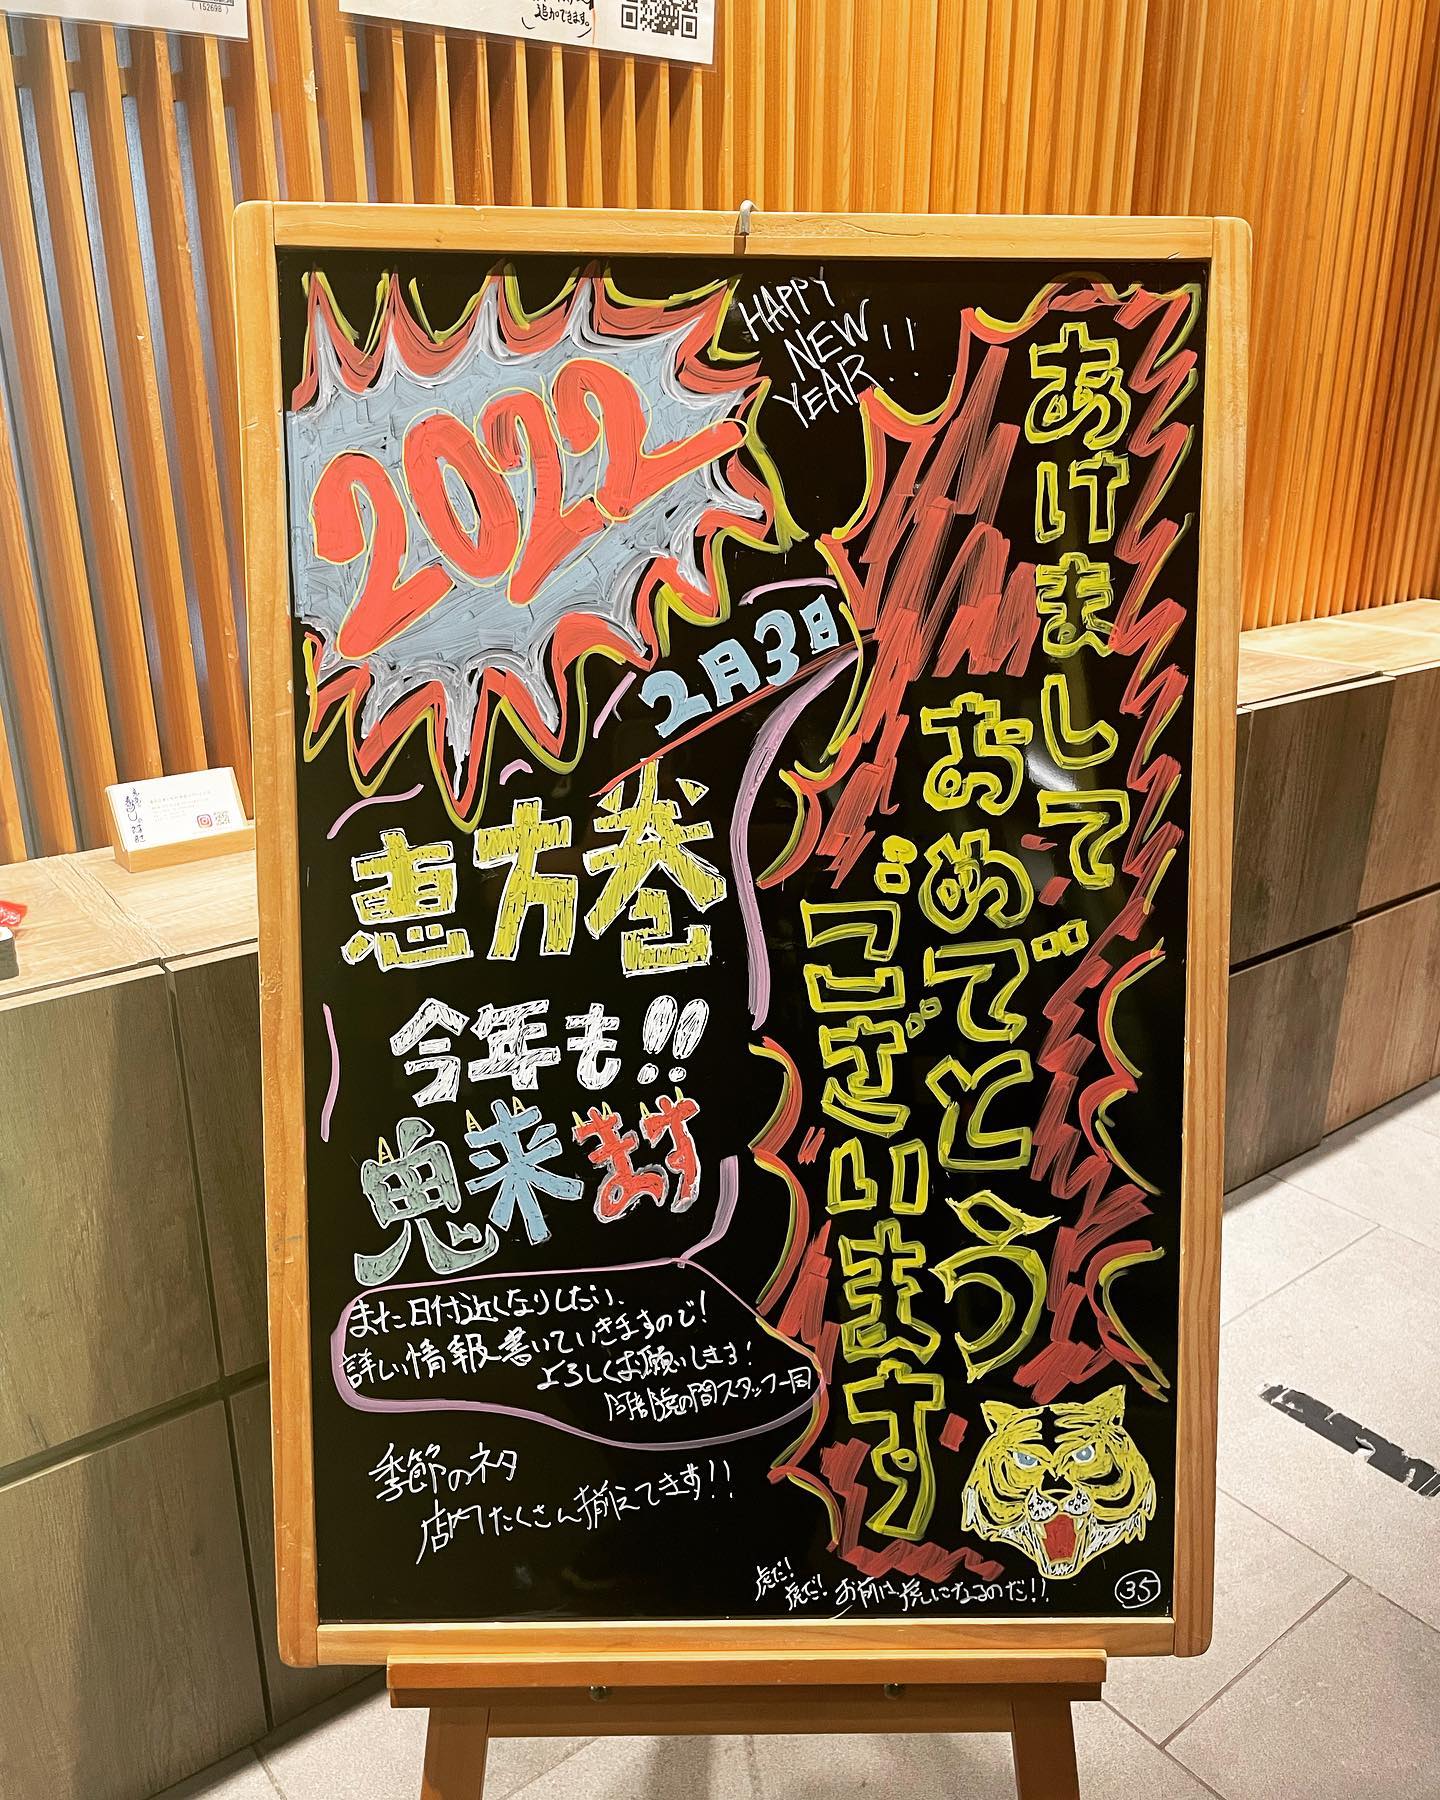 (152698)
追加できます。
2022
HAPPY
NEW
YEAR!!
あけまして
おめでとう
ございます
2月3日
恵方巻
今年も!!
鬼来ます
また日付近くなりしだい、
詳しい情報書いていきますので!
よろしくお願いします!
虎の間スタッフ一同
季節のネタ
店内たくさん揃えてます!!
虎だ!
虎だ!お前は虎になるのだ!!
35